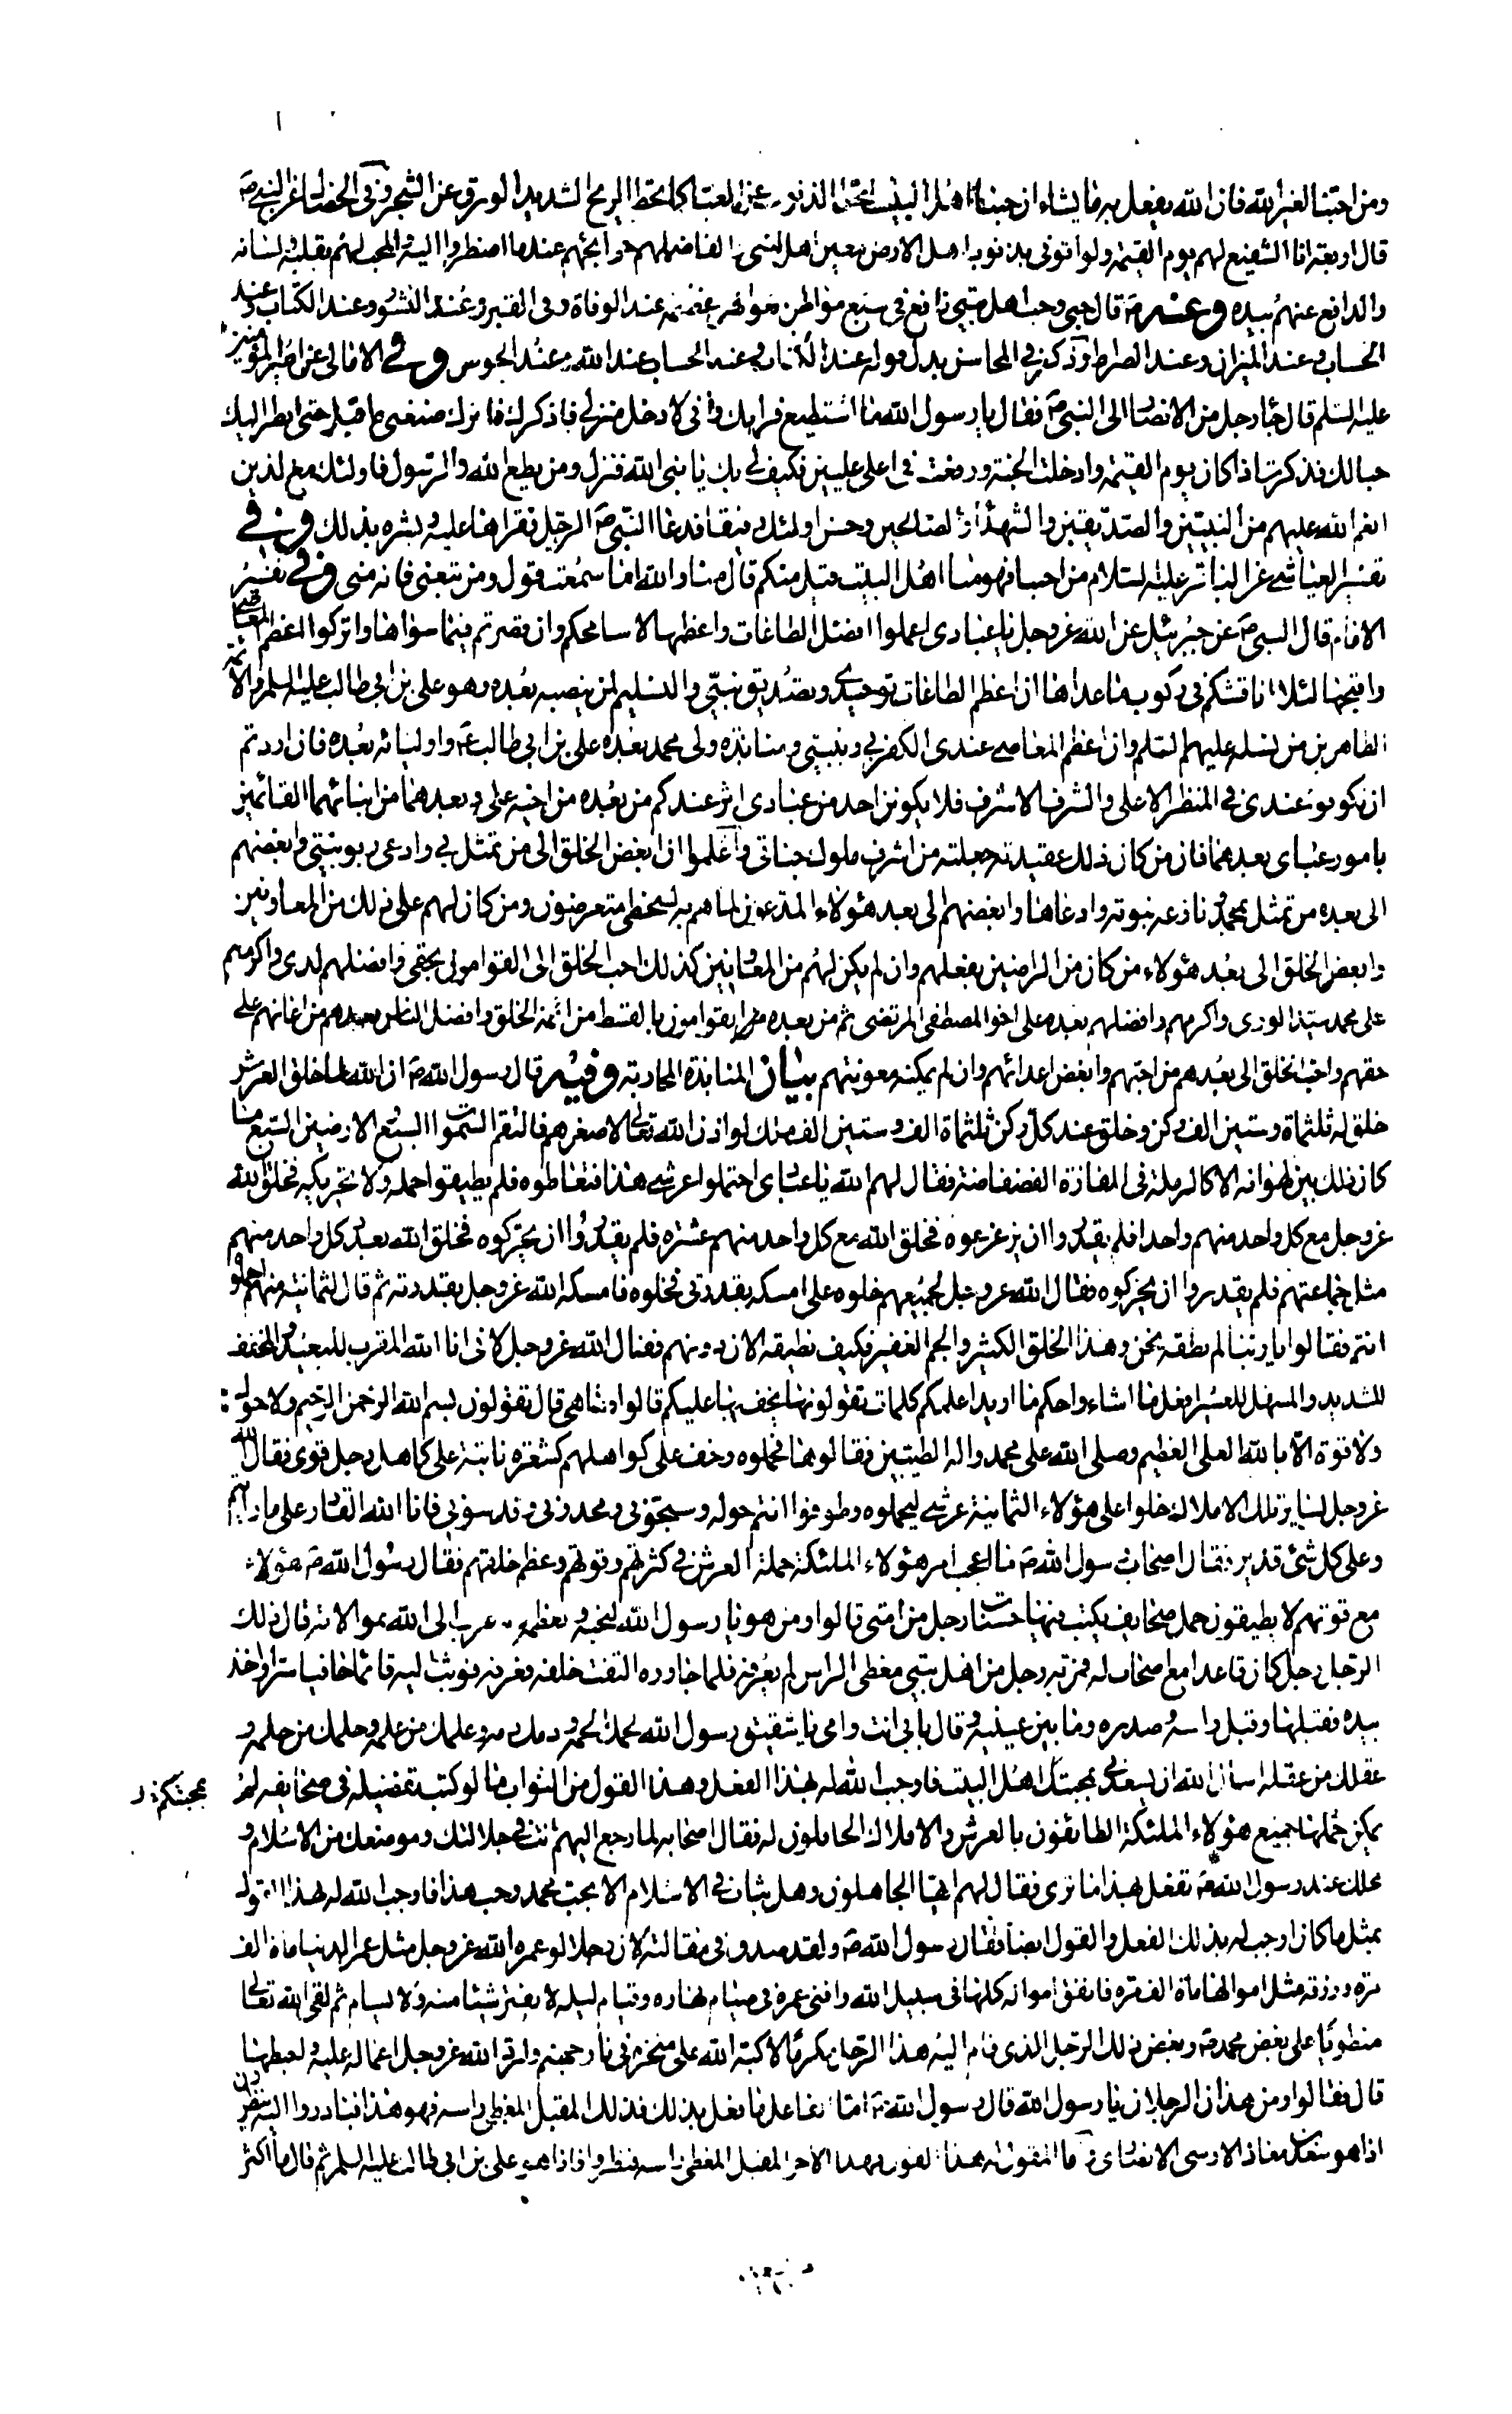 ومن احبنا لغير الله فان الله يفعل به ما يشاء ان حبنا اهل البيت يحط الذنوب عن العباد كما يحط الريح الشديد الورق عن الشجر وفي الخصال عن النبي ص
قال اربعة انا الشفيع لهم يوم القيمة ولو اتوني بذنوب اهل الارض معين اهل بيتي والقاضي لهم حوائجهم عند ما اضطروا اليه والمحب لهم بقلبه ولسانه
والدافع عنهم بيده وعنه ص قال حبي وحب اهل بيتي نافع في سبع مواطن اهوالهن عظيمة عند الوفاة وفي القبر وعند النشور وعند الكتاب وعند
الحساب وعند الميزان وعند الصراط وذكر في المحاسن بدل قوله عند الكتاب وعند الحساب عند الله وعند الحوض وفي الامالي عن امير المؤمنين
عليه السلم قال جاء رجل من الانصار الى النبي ص فقال يا رسول الله ما استطيع فراقك واني لادخل منزلي فاذكرك فاترك ضيعتي واقبل حتى انظر اليك
حبا لك فذكرت اذا كان يوم القيمة وادخلت الجنة ورفعت في اعلى عليين فكيف لي بك يا نبي الله فنزل ومن يطع الله والرسول فاولئك مع الذين
انعم الله عليهم من النبيين والصديقين والشهداء والصالحين وحسن اولئك رفيقا فدعا النبي ص الرجل فقراها عليه وبشره بذلك وفي
تفسير العياشي عن الباقر عليه السلام من احبنا فهو منا اهل البيت قيل منكم قال منا والله اما سمعت قول ومن تبعني فانه مني وفي تفسير
الامام قال النبي ص عن جبرئيل عن الله عز وجل يا عبادي اعملوا افضل الطاعات واعظمها لاسامحكم وان قصرتم فيما سواها واتركوا اعظم المعاصي
واقبحها لئلا اناقشكم في ركوب ما عداها ان اعظم الطاعات توحيدي وتصديق نبيي والتسليم لمن ينصبه بعده وهو علي بن ابي طالب عليه السلم والائمة
الطاهرين من نسله عليهم السلم وان اعظم المعاصي عندي الكفر بي وبنبيي ومنابذة ولي محمد بعده علي بن ابي طالب ع واوليائه بعده فان اردتم
ان تكونوا عندي في المنظر الاعلى والشرف الاشرف فلا يكونن احد من عبادي اثر عندكم من بعده من اخيه علي وبعدهما من ابنائهما القائمين
بامور عبادي بعدهما فان من كان ذلك عقيدته جعلته من اشرف ملوك جناني واعلموا ان ابغض الخلق الي من تمثل بي وادعى ربوبيتي وابغضهم
الي بعده من تمثل بمحمد نازعه نبوته وادعاها وابغضهم الي بعد هؤلاء المدعون لما هم به لسخطي متعرضون ومن كان لهم على ذلك من المعاونين
وابغض الخلق الي بعد هؤلاء من كان من الراضين بفعلهم وان لم يكن لهم من المعاونين كذلك احب الخلق الي القوامون بحقي وافضلهم لدي واكرمهم
علي محمد سيد الورى واكرمهم وافضلهم بعده علي اخو المصطفى المرتضى ثم من بعده من القوامون بالقسط من ائمة الخلق وافضل الناس بعدهم من اعانهم على
حقهم واحب الخلق الي بعدهم من احبهم وابغض اعدائهم وان لم يمكنه معونتهم بيان المنابذة المحاربة وفيه قال رسول الله ص ان الله لما خلق العرش
خلق له ثلثماة وستين الف ركن وخلق عند كل ركن ثلثماة الف وستين الف ملك لو اذن الله تعالى لاصغرهم فالتقم السموات السبع والارضين السبع ما
كان ذلك بين لهواته الا كالرملة في المفازة الفضفاضة فقال لهم الله يا عبادي احتملوا عرشي هذا فتعاطوه فلم يطيقوا حمله ولا تحريكه فخلق الله
عز وجل مع كل واحد منهم واحدا فلم يقدروا ان يزعزعوه فخلق الله مع كل واحد منهم عشرة فلم يقدروا ان يحركوه فخلق الله بعدد كل واحد منهم
مثل جماعتهم فلم يقدروا ان يحركوه فقال الله عز وجل لجميعهم خلوه علي امسكه بقدرتي فخلوه فامسكه الله عز وجل بقدرته ثم قال لثمانية منهم احملوه
انتم فقالوا يا ربنا لم نطقه نحن وهذا الخلق الكثير والجم الغفير فكيف نطيقه الان دونهم فقال الله عز وجل لاني انا الله المقرب للبعيد والمخفف
للشديد والمسهل للعسير افعل ما اشاء واحكم ما اريد اعلمكم كلمات تقولونها يخف بها عليكم قالوا وما هي قال تقولون بسم الله الرحمن الرحيم ولا حول
ولا قوة الا بالله العلي العظيم وصلى الله على محمد واله الطيبين فقالوها فحملوه وخف على كواهلهم كشعرة نابتة على كاهل رجل قوي فقال الله
عز وجل لسائر تلك الاملاك خلوا على هؤلاء الثمانية عرشي ليحملوه وطوفوا انتم حوله وسبحوني ومجدوني وقدسوني فانا الله القادر على ما رايتم
وعلى كل شئ قدير فقال اصحاب رسول الله ص ما اعجب امر هؤلاء الملئكة حملة العرش في كثرتهم وقوتهم وعظم خلقهم فقال رسول الله ص هؤلاء
مع قوتهم لا يطيقون حمل صحايف يكتب فيها حسنات رجل من امتي قالوا ومن هو يا رسول الله لنحبه ونعظمه ونتقرب الى الله بموالاته قال ذلك
الرجل رجل كان قاعدا مع اصحاب له فمر به رجل من اهل بيتي مغطى الراس لم يعرفه فلما جاوزه التفت خلفه فعرفه فوثب اليه قائما حافيا حاسرا واخذ
بيده فقبلها وقبل راسه وصدره وما بين عينيه وقال بابي انت وامي يا شقيق رسول الله لحمك لحمه ودمك دمه وعلمك من علمه وحلمك من حلمه و
عقلك من عقله اسال الله ان يسعدني بمحبتكم اهل البيت فاوجب الله له بهذا الفعل وهذا القول من الثواب ما لو كتب تفضيله في صحايفه لم
بمحبتكم
يمكن حملها جميع هؤلاء الملئكة الطائفون بالعرش والاملاك الحاملون له فقال اصحابه لما رجع اليهم انت في جلالتك وموضعك من الاسلام و
محلك عند رسول الله ص تفعل بهذا ما نرى فقال لهم ايها الجاهلون وهل يثاب في الاسلام الا بحب محمد وحب هذا فاوجب الله له بهذا القول
بمثل ما كان اوجب له بذلك الفعل والقول ايضا فقال رسول الله ص ولقد صدق في مقالته لان رجلا لو عمره الله عز وجل مثل عمر الدنيا ماة الف
مرة ورزقه مثل اموالها ماة الف مرة فانفق امواله كلها في سبيل الله وافنى عمره في صيام نهاره وقيام ليله لا يفتر شيئا منه ولا يسام ثم لقي الله تعالى
منطويا على بغض محمد ص وبغض ذلك الرجل الذي قام اليه هذا الرجل مكرما الا كبه الله على منخره في نار جهنم ولرد الله عز وجل اعماله عليه ولحبطها
قال فقالوا ومن هذان الرجلان يا رسول الله قال رسول الله ص اما الفاعل ما فعل بذلك فذلك المقبل المغطي راسه فهو هذا فبادروا اليه ينظرون
اذا هو سعد بن معاذ الاوسي الانصاري واما المقول له هذا القول فهذا الاخر المقبل المغطي راسه فنظروا فاذا هو علي بن ابي طالب عليه السلم ثم قال ما اكثر